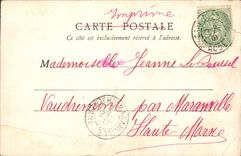 Imprimé
CARTE POSTALE
Ce côté est exclusivement réservé à l'adresse.
Mademoiselle Jeanne Le
Vaudremont par Maranville
Haute Marne